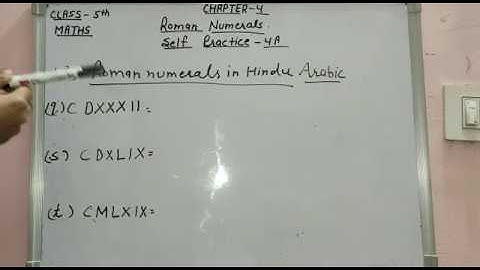 CLASS - 5th
MATHS
CHAPTER-4
Roman Numerals.
Self Practice - 4A
Roman numerals in Hindu Arabic
CDXXXII=
(s) CDXLIX=
(t) CMLXIX=